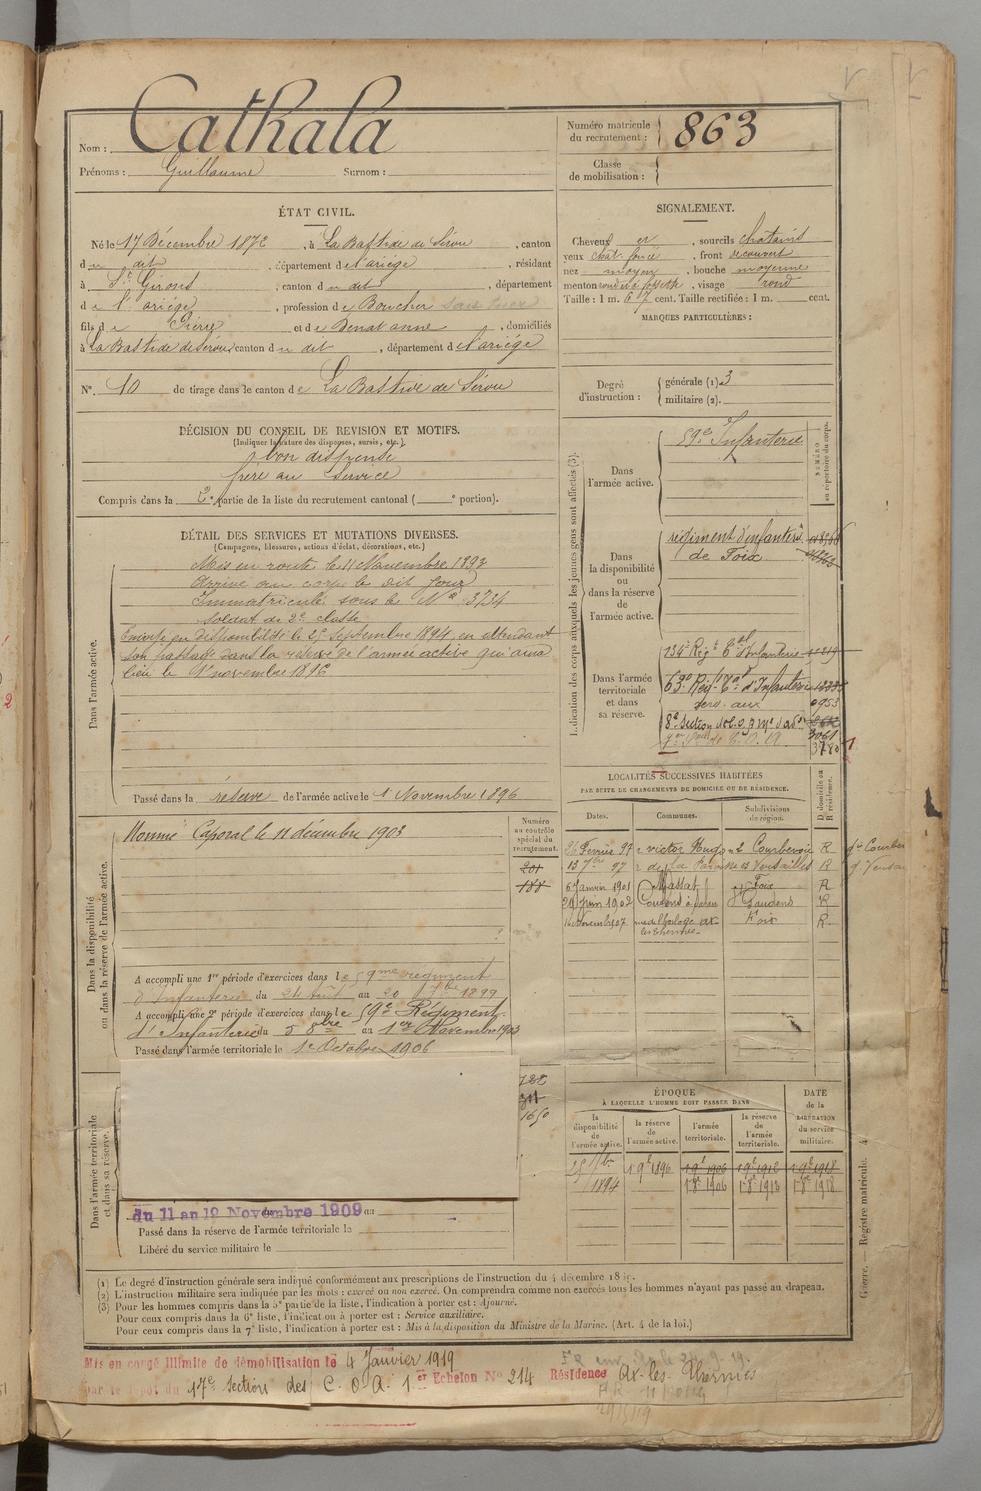 Nom : Cathala
Prénoms : Guillaume Surnom :
Numéro matricule du recrutement : 863
Classe de mobilisation :
ÉTAT CIVIL.
Né le 17 Décembre 1872, à La Bastide de Sérou, canton
du dit, département de l'ariège, résidant
à St Girons, canton du dit, département
de l'ariège, profession de Boucher
fils de Pierre et de Benat anne, domiciliés
à La Bastide de Sérou, canton du dit, département de l'ariège
N°. 10 de tirage dans le canton de La Bastide de Sérou
SIGNALEMENT.
Cheveux et, sourcils chatains
yeux chat. foncé, front découvert
nez moyen, bouche moyenne
menton rond à fossette, visage rond
Taille : 1 m. 67 cent. Taille rectifiée : 1 m. cent.
MARQUES PARTICULIÈRES :
Degré d'instruction :
générale (1). 3
militaire (2).
DÉCISION DU CONSEIL DE REVISION ET MOTIFS.
(Indiquer la nature des dispenses, sursis, etc.)
bon dispensé
frère au Service
Compris dans la 2e partie de la liste du recrutement cantonal ( e portion).
DÉTAIL DES SERVICES ET MUTATIONS DIVERSES.
(Campagnes, blessures, actions d'éclat, décorations, etc.)
Dans l'armée active.
Mis en route le 11 Novembre 1893
Arrivé au corps le dit jour
Immatriculé sous le N° 3734
Soldat de 2e classe
Envoyé en disponibilité le 25 septembre 1894, en attendant
son passage dans la réserve de l'armée active qui aura
lieu le 1er novembre 1896
Passé dans la réserve de l'armée active le 1 Novembre 1896
Indication des corps auxquels les jeunes gens sont affectés (3).
NUMÉRO au répertoire du corps.
Dans l'armée active.
59e Infanterie
Dans la disponibilité ou dans la réserve de l'armée active.
régiment d'infanterie
de Foix
Dans l'armée territoriale et dans sa réserve.
134e Régt Tal d'Infanterie
63e Régt Tal d'Infanterie
serv. aux 0953
8e Section
3061
3780
LOCALITÉS SUCCESSIVES HABITÉES
PAR SUITE DE CHANGEMENTS DE DOMICILE OU DE RÉSIDENCE.
Dates. Communes. Subdivisions de région. D domicile ou R résidence.
26 Février 97 r victor Hugo Courbevoie R
13 7bre 97 r de la Paroisse Versailles R
6 Janvier 1901 Massat Foix R
29 Juin 1902 St Gaudens R
Novembre 1907 Foix R
Dans la disponibilité ou dans la réserve de l'armée active.
Numéro au contrôle spécial du recrutement.
201
188
Nommé Caporal le 11 décembre 1903
A accompli une 1re période d'exercices dans le 59me régiment
d'Infanterie du 24 Août au 20 7bre 1899
A accompli une 2e période d'exercices dans le 59e Régiment
d'Infanterie du 5 8bre au 1er Novembre 1903
Passé dans l'armée territoriale le 1er Octobre 1906
Dans l'armée territoriale et dans sa réserve.
311
1650
du 11 au 19 Novembre 1909 au
Passé dans la réserve de l'armée territoriale le
Libéré du service militaire le
ÉPOQUE
À LAQUELLE L'HOMME DOIT PASSER DANS
DATE de la LIBÉRATION du service militaire.
la disponibilité de l'armée active. la réserve de l'armée active. l'armée territoriale. la réserve de l'armée territoriale.
25 7bre 1894 1 9e 1896 1 9e 1906 1 9e 1912 1 9e 1918
1 8e 1906 1 8e 1912 1 8e 1918
(1) Le degré d'instruction générale sera indiqué conformément aux prescriptions de l'instruction du 4 décembre
(2) L'instruction militaire sera indiquée par les mots : exercé ou non exercé. On comprendra comme non exercés tous les hommes n'ayant pas passé au drapeau.
(3) Pour les hommes compris dans la 5e partie de la liste, l'indication à porter est : Ajourné.
Pour ceux compris dans la 6e liste, l'indication à porter est : Service auxiliaire.
Pour ceux compris dans la 7e liste, l'indication à porter est : Mis à la disposition du Ministre de la Marine. (Art. 4 de la loi.)
Guerre. — Registre matricule. 4
Mis en congé illimité de démobilisation le 4 Janvier 1919
par le dépôt du 17e section des C. O. A. 1er Echelon N° 214 Résidence Ax-les-Thermes